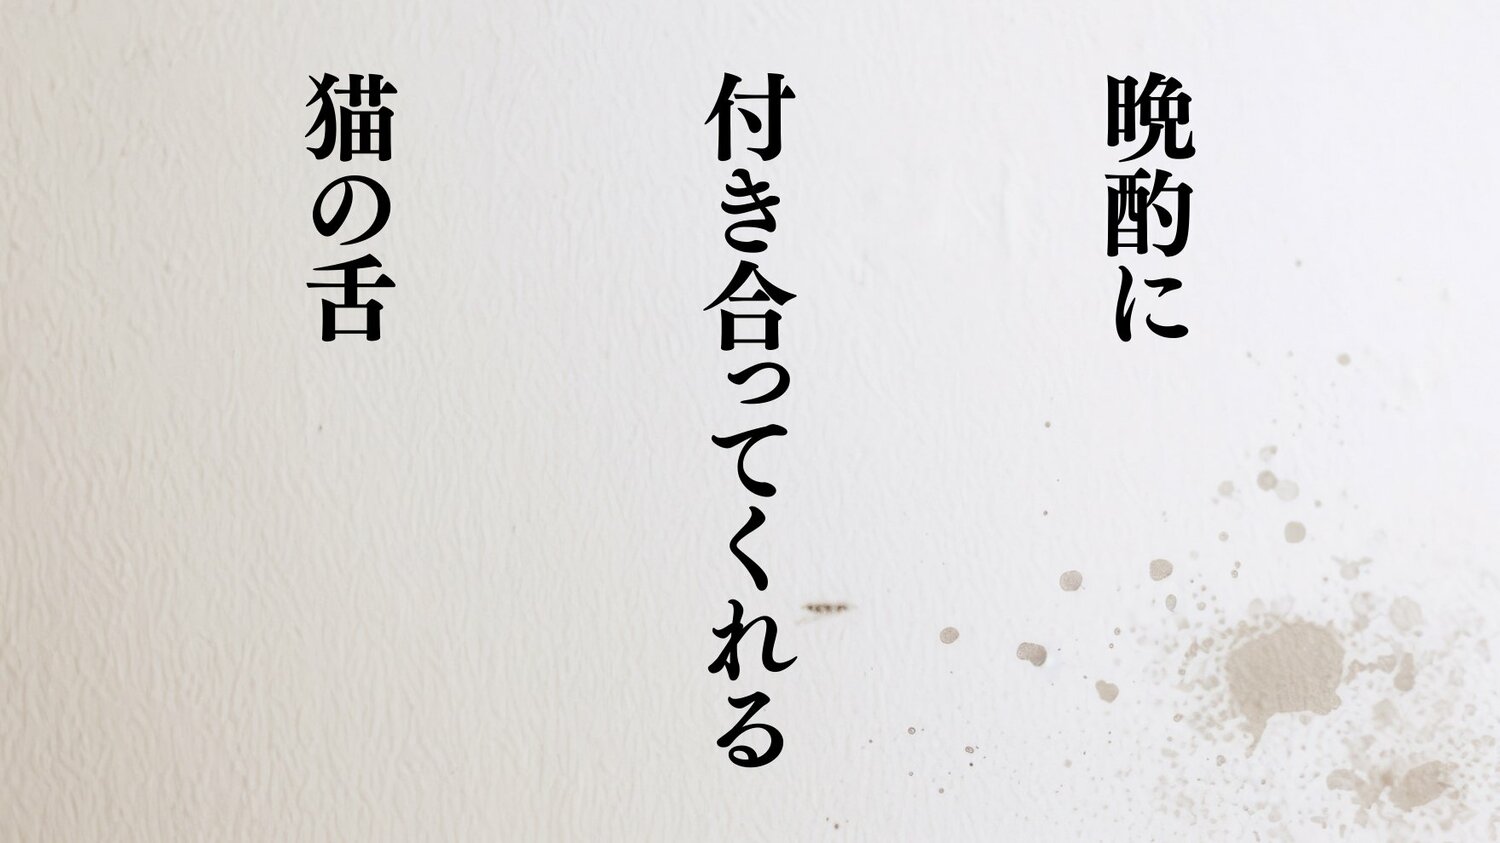 晩酌に
付き合ってくれる
猫の舌